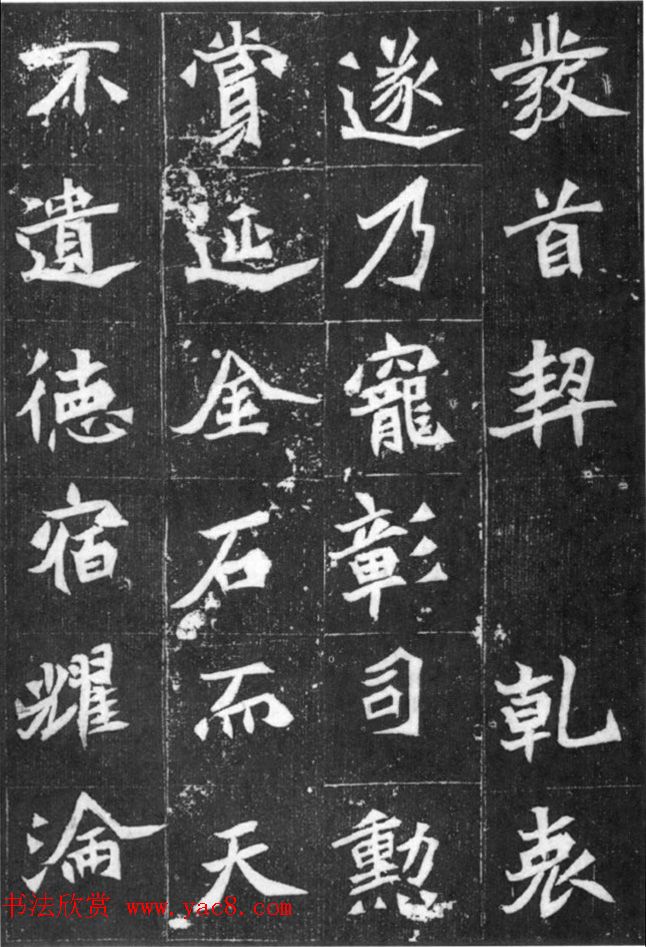 發首契 乾衷
遂乃寵彰司勳
賞延金石而天
不遺德宿耀淪
书法欣赏 www.yac8.com